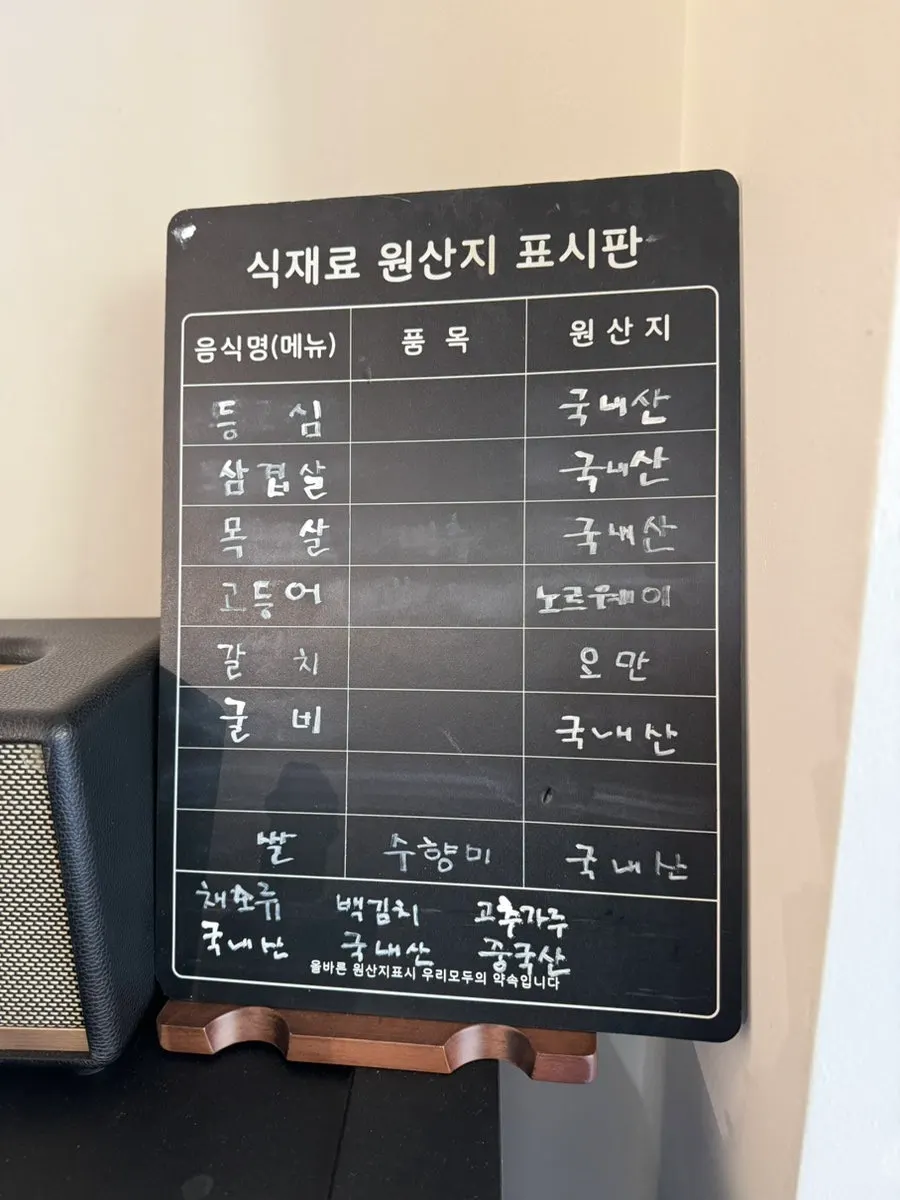 식재료 원산지 표시판
음식명(메뉴) 품 목 원 산 지
등 심 국내산
삼겹살 국내산
목 살 국내산
고등어 노르웨이
갈 치 오만
굴 비 국내산
쌀 수향미 국내산
채소류 백김치 고추가루
국내산 국내산 중국산
올바른 원산지표시 우리모두의 약속입니다